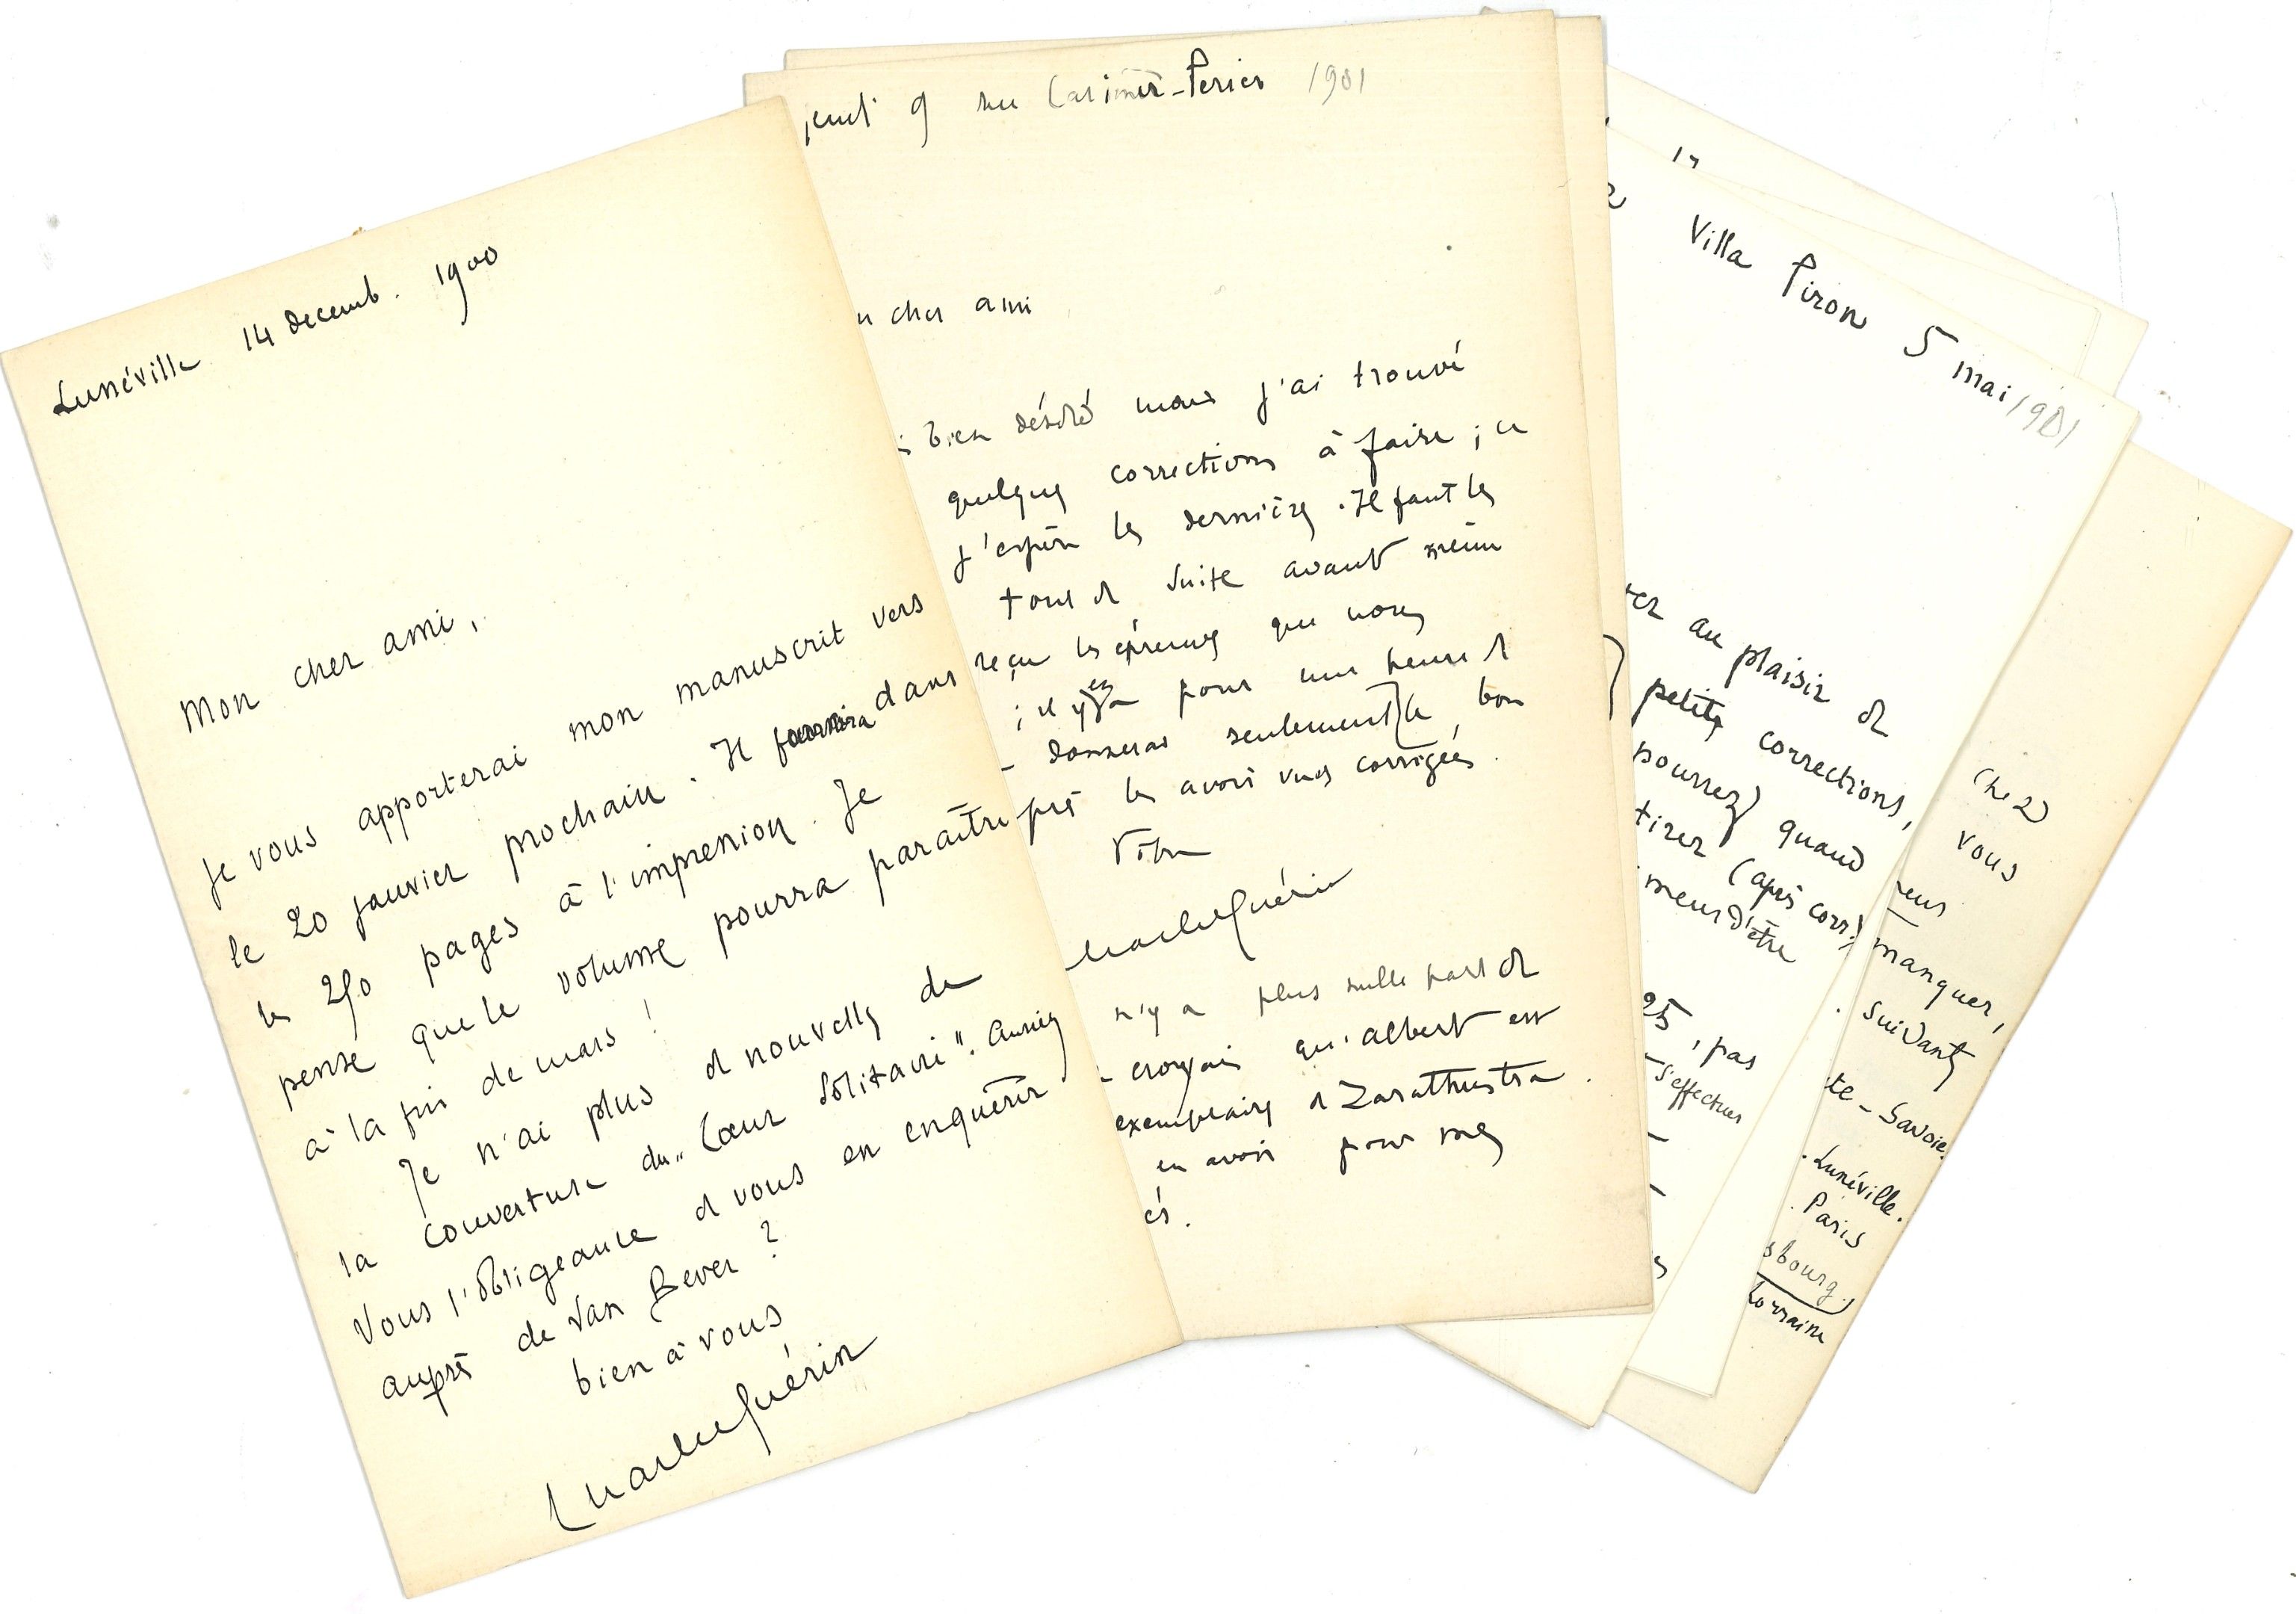 Lunéville 14 decemb. 1900
Mon cher ami,
Je vous apporterai mon manuscrit vers
le 20 janvier prochain. Il fournira dans
les 250 pages à l'impression. Je
pense que le volume pourra paraître
à la fin de mars !
Je n'ai plus de nouvelles de
la couverture du "Cœur Solitaire". Auriez
vous l'obligeance de vous en enquérir
auprès de Van Bever ?
bien à vous
Charles Guérin
jeudi 9 rue Casimir-Perier 1901
n cher ami
bien désolé mais j'ai trouvé
quelques corrections à faire ; ce
j'espère les dernières. Il faut les
tout de suite avant même
reçu les épreuves que nous
; il y en a pour une heure de
donneras seulement le bon
près les avoir vues corrigées.
Votre
Charles Guérin
n'y a plus nulle part de
croyais qu'Albert est
exemplaires de Zarathustra.
en avoir pour mes
és.
17
Villa Piron 5 mai 1901
ter au plaisir de
petites corrections,
pourrez) quand
tirer (après corr.)
imeur d'être
25, pas
s'effectuer
chez
vous
manquer,
suivants
te-Savoie.
Lunéville.
Paris
sbourg.)
Lorraine